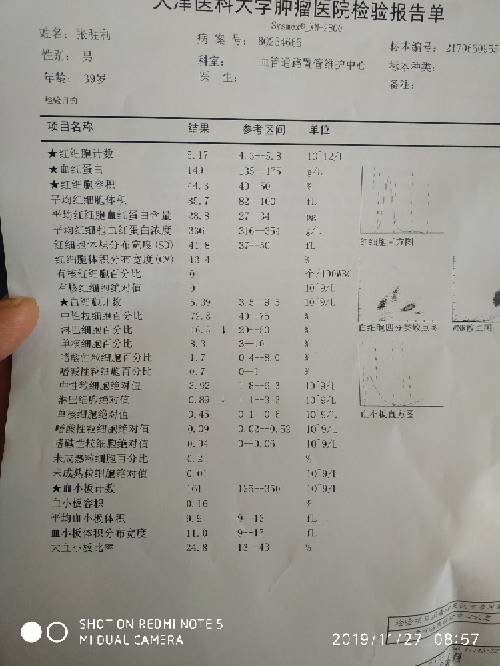 天津医科大学肿瘤医院检验报告单
姓名: 张胜利 病 案 号: 标本编号:
性别: 男 科室: 血管通路置管维护中心 标本种类:
年龄: 39岁 医 生: 备注:
检验目的
项目名称 结果 参考区间 单位
★红细胞计数 5.17 10^12/L
★血红蛋白 149 g/L
★红细胞容积 44.3 40--50 %
平均红细胞体积 85.7 82--100 fL
平均红细胞血红蛋白含量 28.8 27--34 pg
平均红细胞血红蛋白浓度 336 316--354 g/L
红细胞体积分布宽度(SD) 41.8 37--50 fL
红细胞体积分布宽度(CV) 13.4 %
有核红细胞百分比 0 个/100WBC
有核红细胞绝对值 0 10^9/L
★白细胞计数 5.39 3.5--9.5 10^9/L
中性粒细胞百分比 72.8 40--75 %
淋巴细胞百分比 16.5 ↓ 20--50 %
单核细胞百分比 8.3 3--10 %
嗜酸性粒细胞百分比 1.7 0.4--8.0 %
嗜碱性粒细胞百分比 0.7 0--1 %
中性粒细胞绝对值 3.92 1.8--6.3 10^9/L
淋巴细胞绝对值 0.89 ↓ 1.1--3.2 10^9/L
单核细胞绝对值 0.45 0.1--0.6 10^9/L
嗜酸性粒细胞绝对值 0.09 0.02--0.52 10^9/L
嗜碱性粒细胞绝对值 0.04 0--0.06 10^9/L
未成熟粒细胞百分比 0.2 %
未成熟粒细胞绝对值 0.01 10^9/L
★血小板计数 161 125--350 10^9/L
血小板容积 0.16 %
平均血小板体积 9--13 fL
血小板体积分布宽度 11.0 9--17 fL
大血小板比率 24.8 13--43 %
红细胞直方图
白细胞四分类散点图
血小板直方图
SHOT ON REDMI NOTE 5
MI DUAL CAMERA
2019/11/27 08:57